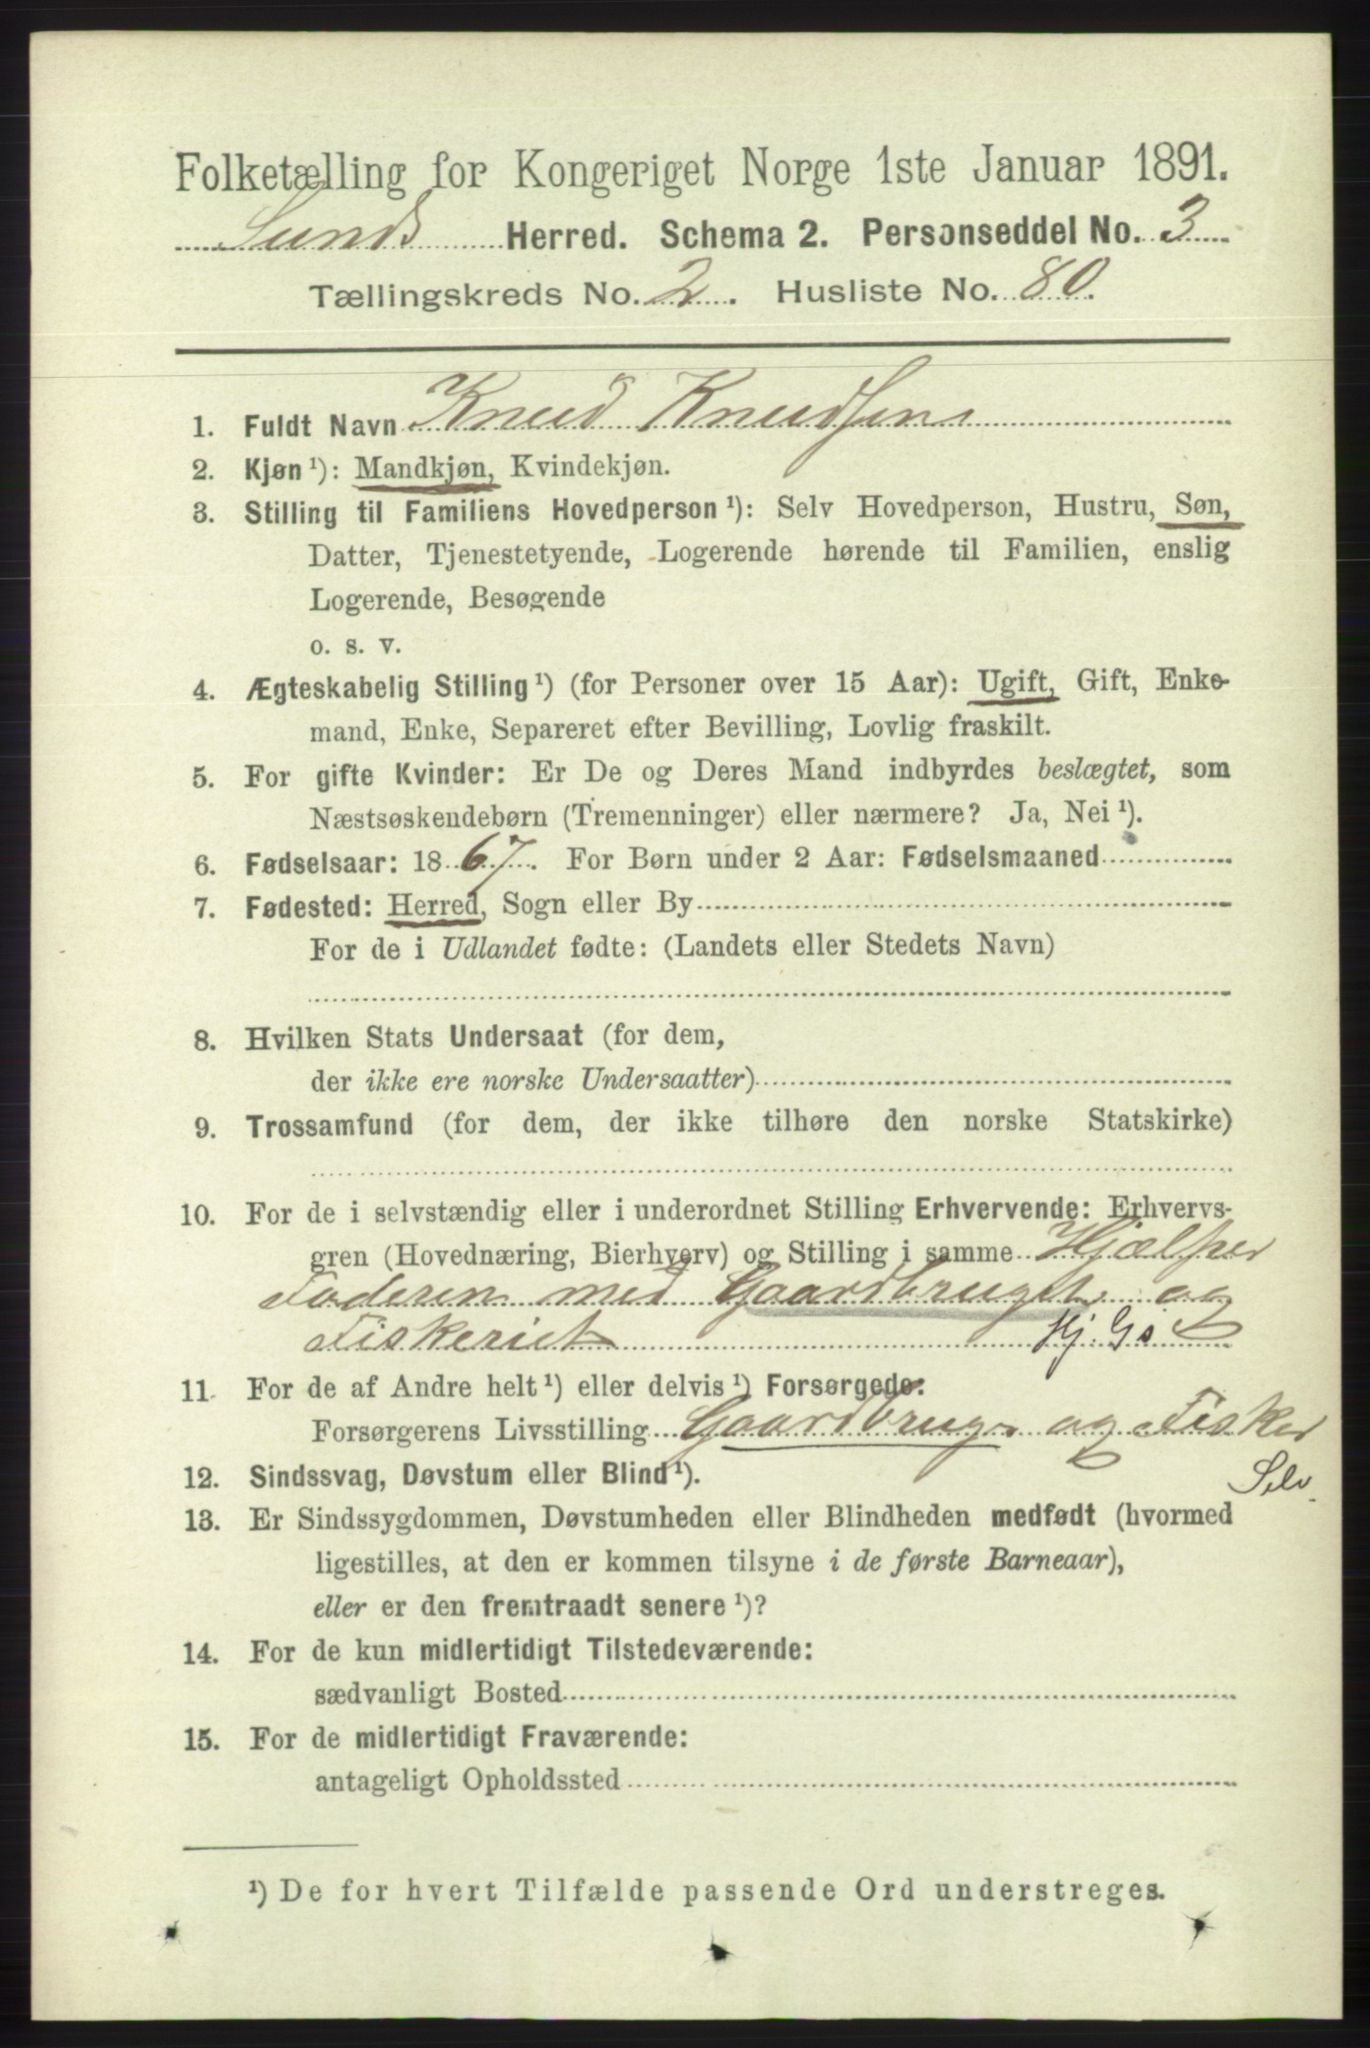 Folketælling for Kongeriget Norge 1ste Januar 1891.
Sunds Herred. Schema 2. Personseddel No. 3
Tællingskreds No. 2. Husliste No. 80.
1. Fuldt Navn Knud Knudsen
2. Kjøn ¹): Mandkjøn, Kvindekjøn.
3. Stilling til Familiens Hovedperson ¹): Selv Hovedperson, Hustru, Søn,
Datter, Tjenestetyende, Logerende hørende til Familien, enslig
Logerende, Besøgende
o. s. v.
4. Ægteskabelig Stilling ¹) (for Personer over 15 Aar): Ugift, Gift, Enke-
mand, Enke, Separeret efter Bevilling, Lovlig fraskilt.
5. For gifte Kvinder: Er De og Deres Mand indbyrdes beslægtet, som
Næstsøskendebørn (Tremenninger) eller nærmere? Ja, Nei ¹).
6. Fødselsaar: 1867. For Børn under 2 Aar: Fødselsmaaned
7. Fødested: Herred, Sogn eller By
For de i Udlandet fødte: (Landets eller Stedets Navn)
8. Hvilken Stats Undersaat (for dem,
der ikke ere norske Undersaatter)
9. Trossamfund (for dem, der ikke tilhøre den norske Statskirke)
10. For de i selvstændig eller i underordnet Stilling Erhvervende: Erhvervs-
gren (Hovednæring, Bierhverv) og Stilling i samme Hjælper
Faderen med Gaardbruget og
Fiskeriet Hj. Gs
11. For de af Andre helt ¹) eller delvis ¹) Forsørgede:
Forsørgerens Livsstilling Gaardbrug. og Fisker
12. Sindssvag, Døvstum eller Blind ¹). Selv.
13. Er Sindssygdommen, Døvstumheden eller Blindheden medfødt (hvormed
ligestilles, at den er kommen tilsyne i de første Barneaar),
eller er den fremtraadt senere ¹)?
14. For de kun midlertidigt Tilstedeværende:
sædvanligt Bosted
15. For de midlertidigt Fraværende:
antageligt Opholdssted
¹) De for hvert Tilfælde passende Ord understreges.